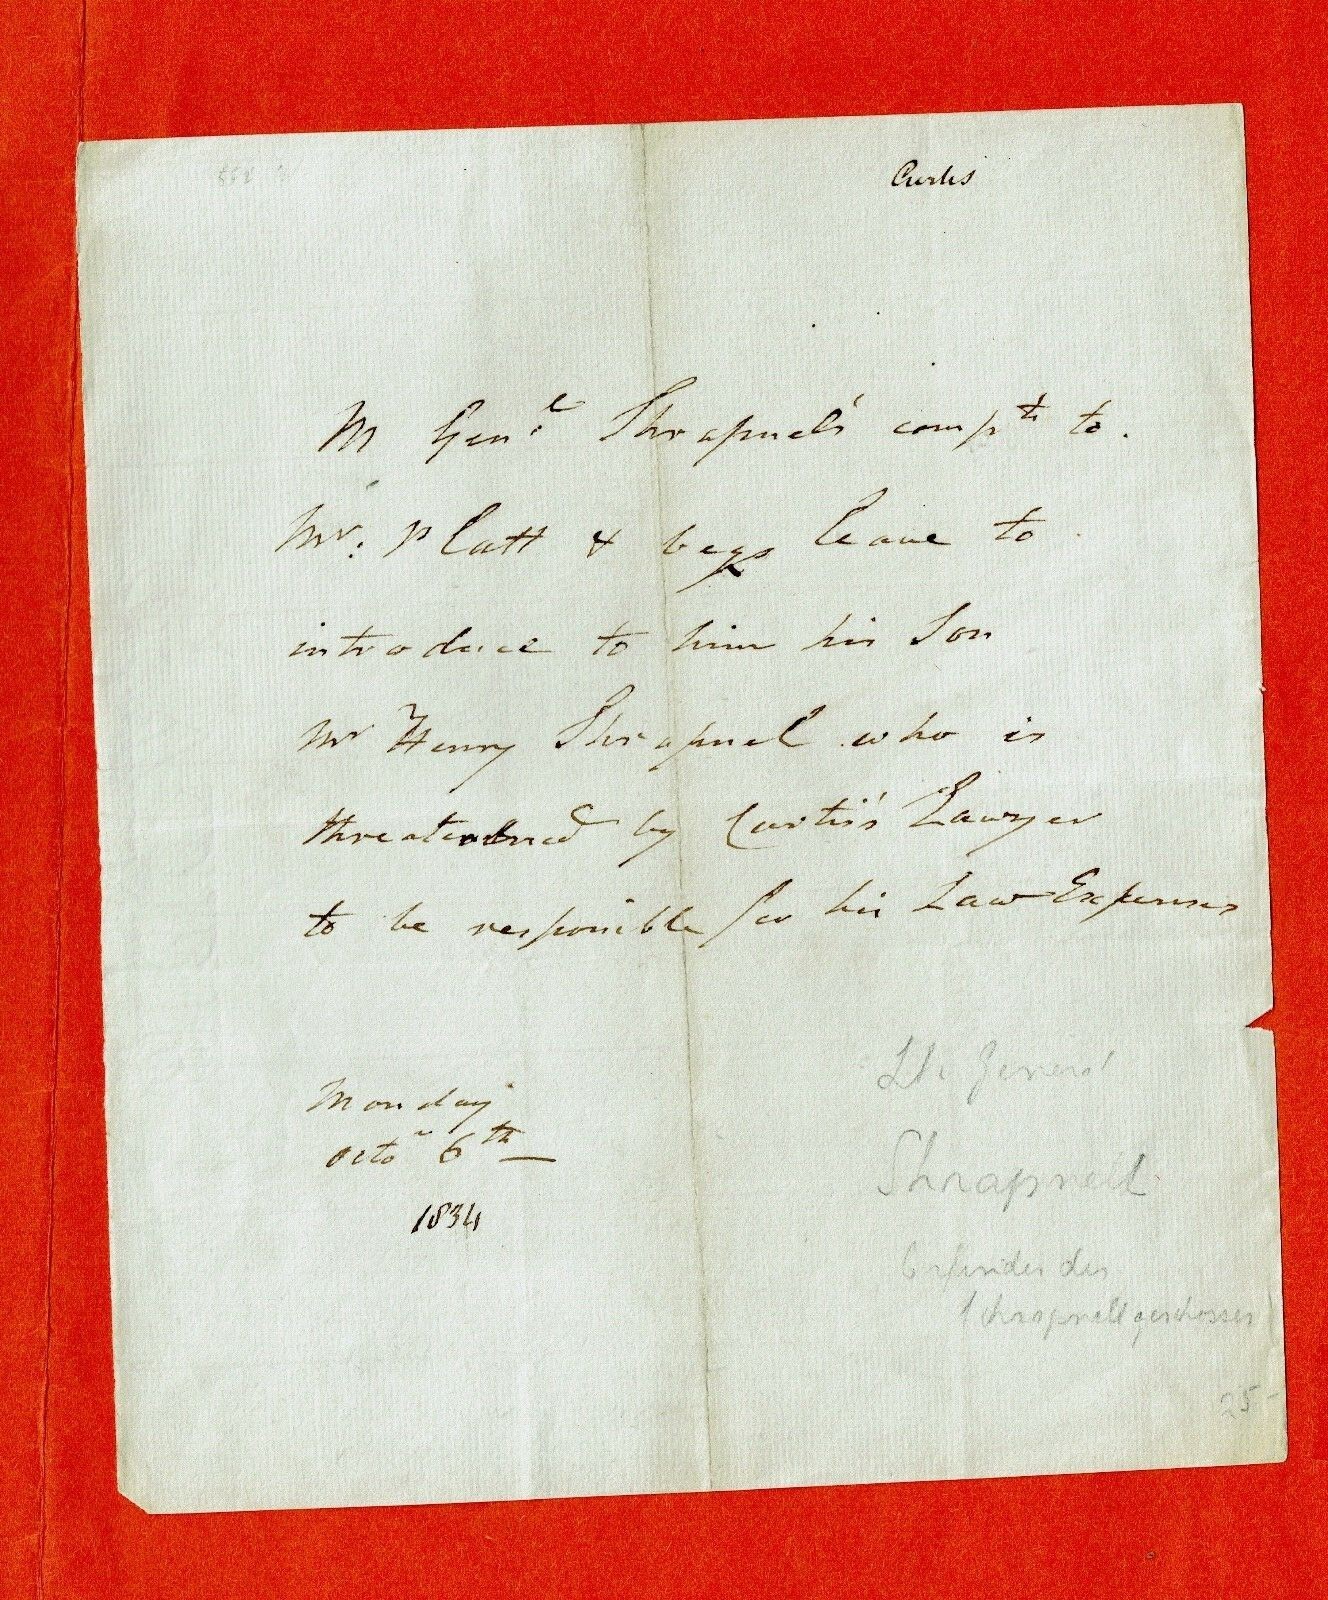 Curtis
M Gen.l Shrapnel's compts to
Mr. Platt & begs leave to
introduce to him his Son
Mr Henry Shrapnel who is
threatened by Curtis's Lawyer
to be responsible for his Law Expenses
Monday
Octo 6th
1834
Lt. General
Shrapnell
Erfinder des
Schrapnellgeschosses
25-